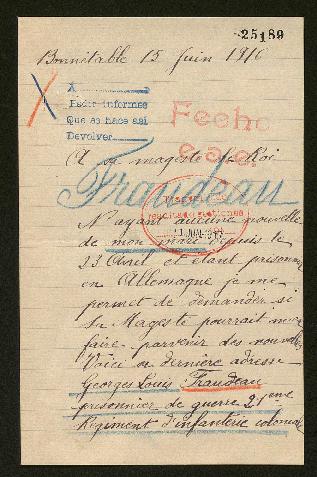 25189
Bonnétable 15 Juin 1916
A
Pedir informes
Que se hace así
Devolver
Fecho
e.a.e.
A sa magesté le Roi
Fraudeau
N'ayant aucune nouvelle
de mon mari depuis le
23 Avril et étant prisonnier
en Allemagne je me
permet de demander si
sa Magesté pourrait me
faire parvenir des nouvelles
Voici sa dernière adresse
Georges Louis Fraudeau
prisonnier de guerre 21eme
Régiment d'infanterie coloniale